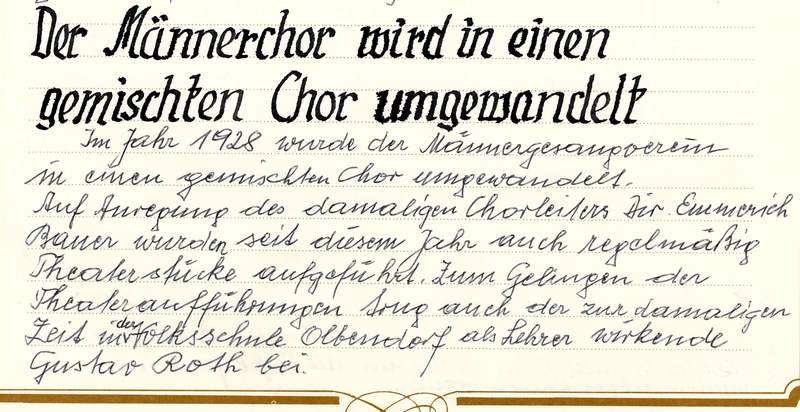 Der Männerchor wird in einen
gemischten Chor umgewandelt
Im Jahr 1928 wurde der Männergesangverein
in einen gemischten Chor umgewandelt.
Auf Anregung des damaligen Chorleiters Dir. Emmerich
Bauer wurden seit diesem Jahr auch regelmäßig
Theaterstücke aufgeführt. Zum Gelingen der
Theateraufführungen trug auch der zur damaligen
Zeit in der Volksschule Olbendorf als Lehrer wirkende
Gustav Roth bei.